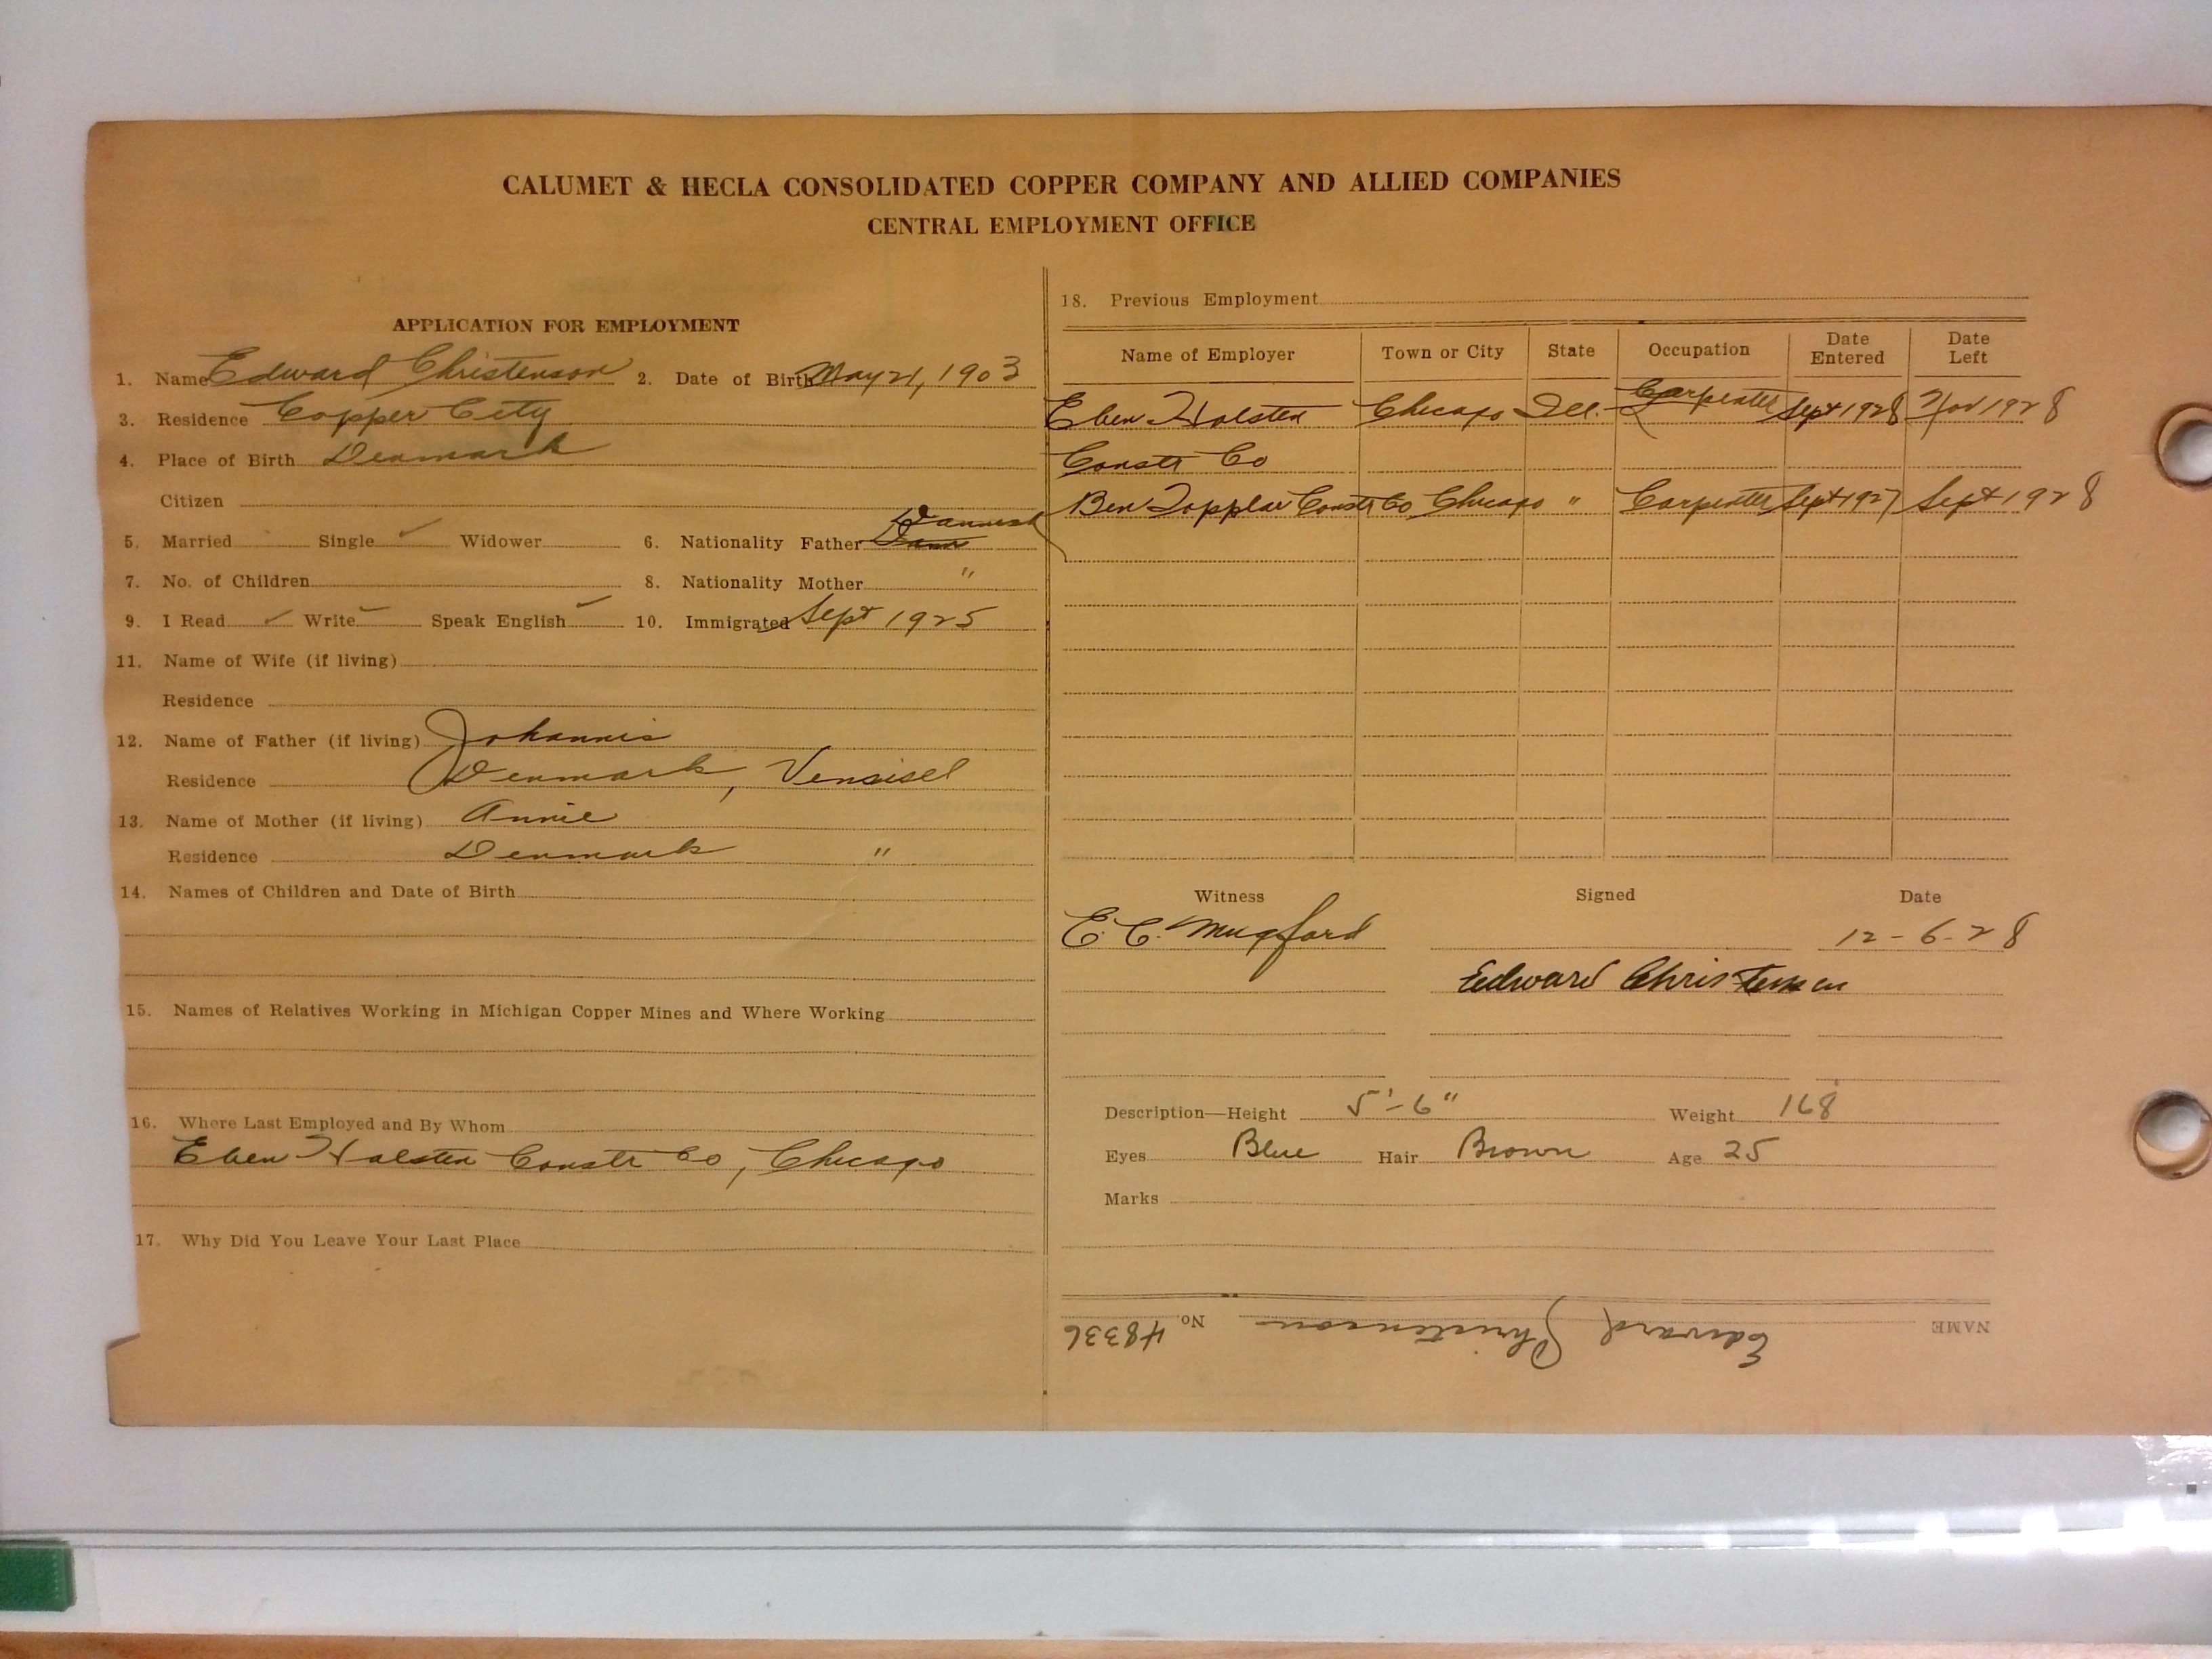 CALUMET & HECLA CONSOLIDATED COPPER COMPANY AND ALLIED COMPANIES
CENTRAL EMPLOYMENT OFFICE
APPLICATION FOR EMPLOYMENT
1. Name Edward Christenson 2. Date of Birth May 21, 1903
3. Residence Copper City
4. Place of Birth Denmark
Citizen
Dannish
5. Married Single ✓ Widower 6. Nationality Father
7. No. of Children 8. Nationality Mother "
9. I Read ✓ Write ✓ Speak English ✓ 10. Immigrated Sept 1925
11. Name of Wife (if living)
Residence
12. Name of Father (if living) Johannis
Residence Denmark,
13. Name of Mother (if living) Annie
Residence Denmark "
14. Names of Children and Date of Birth
15. Names of Relatives Working in Michigan Copper Mines and Where Working
16. Where Last Employed and By Whom
Eben Holsten Constr Co, Chicago
17. Why Did You Leave Your Last Place
18. Previous Employment
Name of Employer Town or City State Occupation Date Entered Date Left
Eben Holsten Chicago Ill. Carpenter Sept 1928 Nov 1928
Constr Co
Ben Constr Co Chicago " Carpenter Sept 1927 Sept 1928
Witness Signed Date
E. C. Mugford 12-6-28
Edward Christensen
Description—Height 5'-6" Weight 168
Eyes Blue Hair Brown Age 25
Marks
NAME Edward Christenson No. 48336